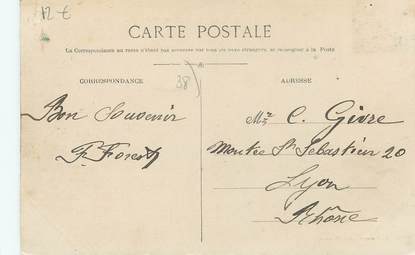 12 €
CARTE POSTALE
La Correspondance au recto n'étant pas acceptée par tous les pays étrangers, se renseigner à la Poste
CORRESPONDANCE
38
ADRESSE
Bon Souvenir
F. Forest
Mr C. Givre
Montée St Sébastien 20
Lyon
Rhône